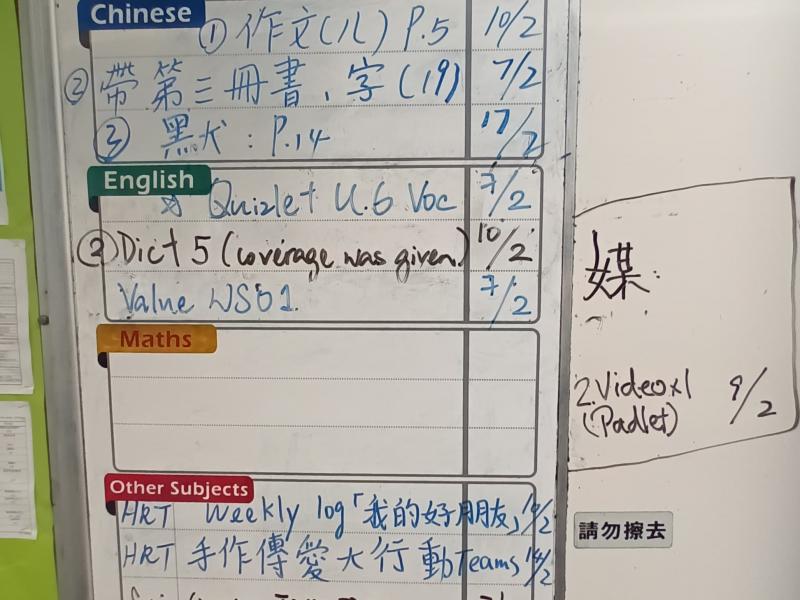 Chinese
① 作文(八) P.5 10/2
② 帶第三冊書、字(19) 7/2
③ 黑犬：P.14 17/2
English
☆ Quizlet U.6 Voc 7/2
② Dict 5 (coverage was given) 10/2
Value WS01 7/2
Maths
Other Subjects
HRT Weekly log「我的好朋友」
HRT 手作傳愛大行動Teams 14/2
媒:
2. Video x1 9/2
(Padlet)
請勿擦去